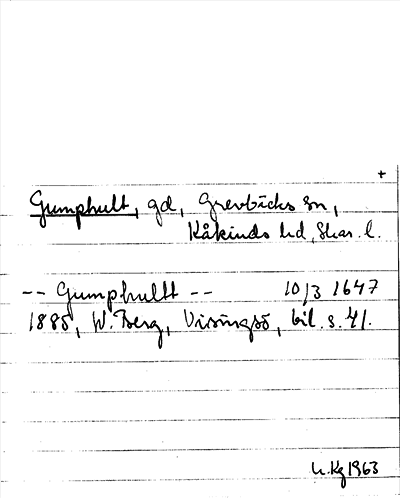 +
Gumphult, gd, Grevbäcks sn,
Kåkinds hd, Skar. l.
-- Gumphultt -- 10/3 1647
1885, W. Berg, Visingsö, bil. s. 41.
1963